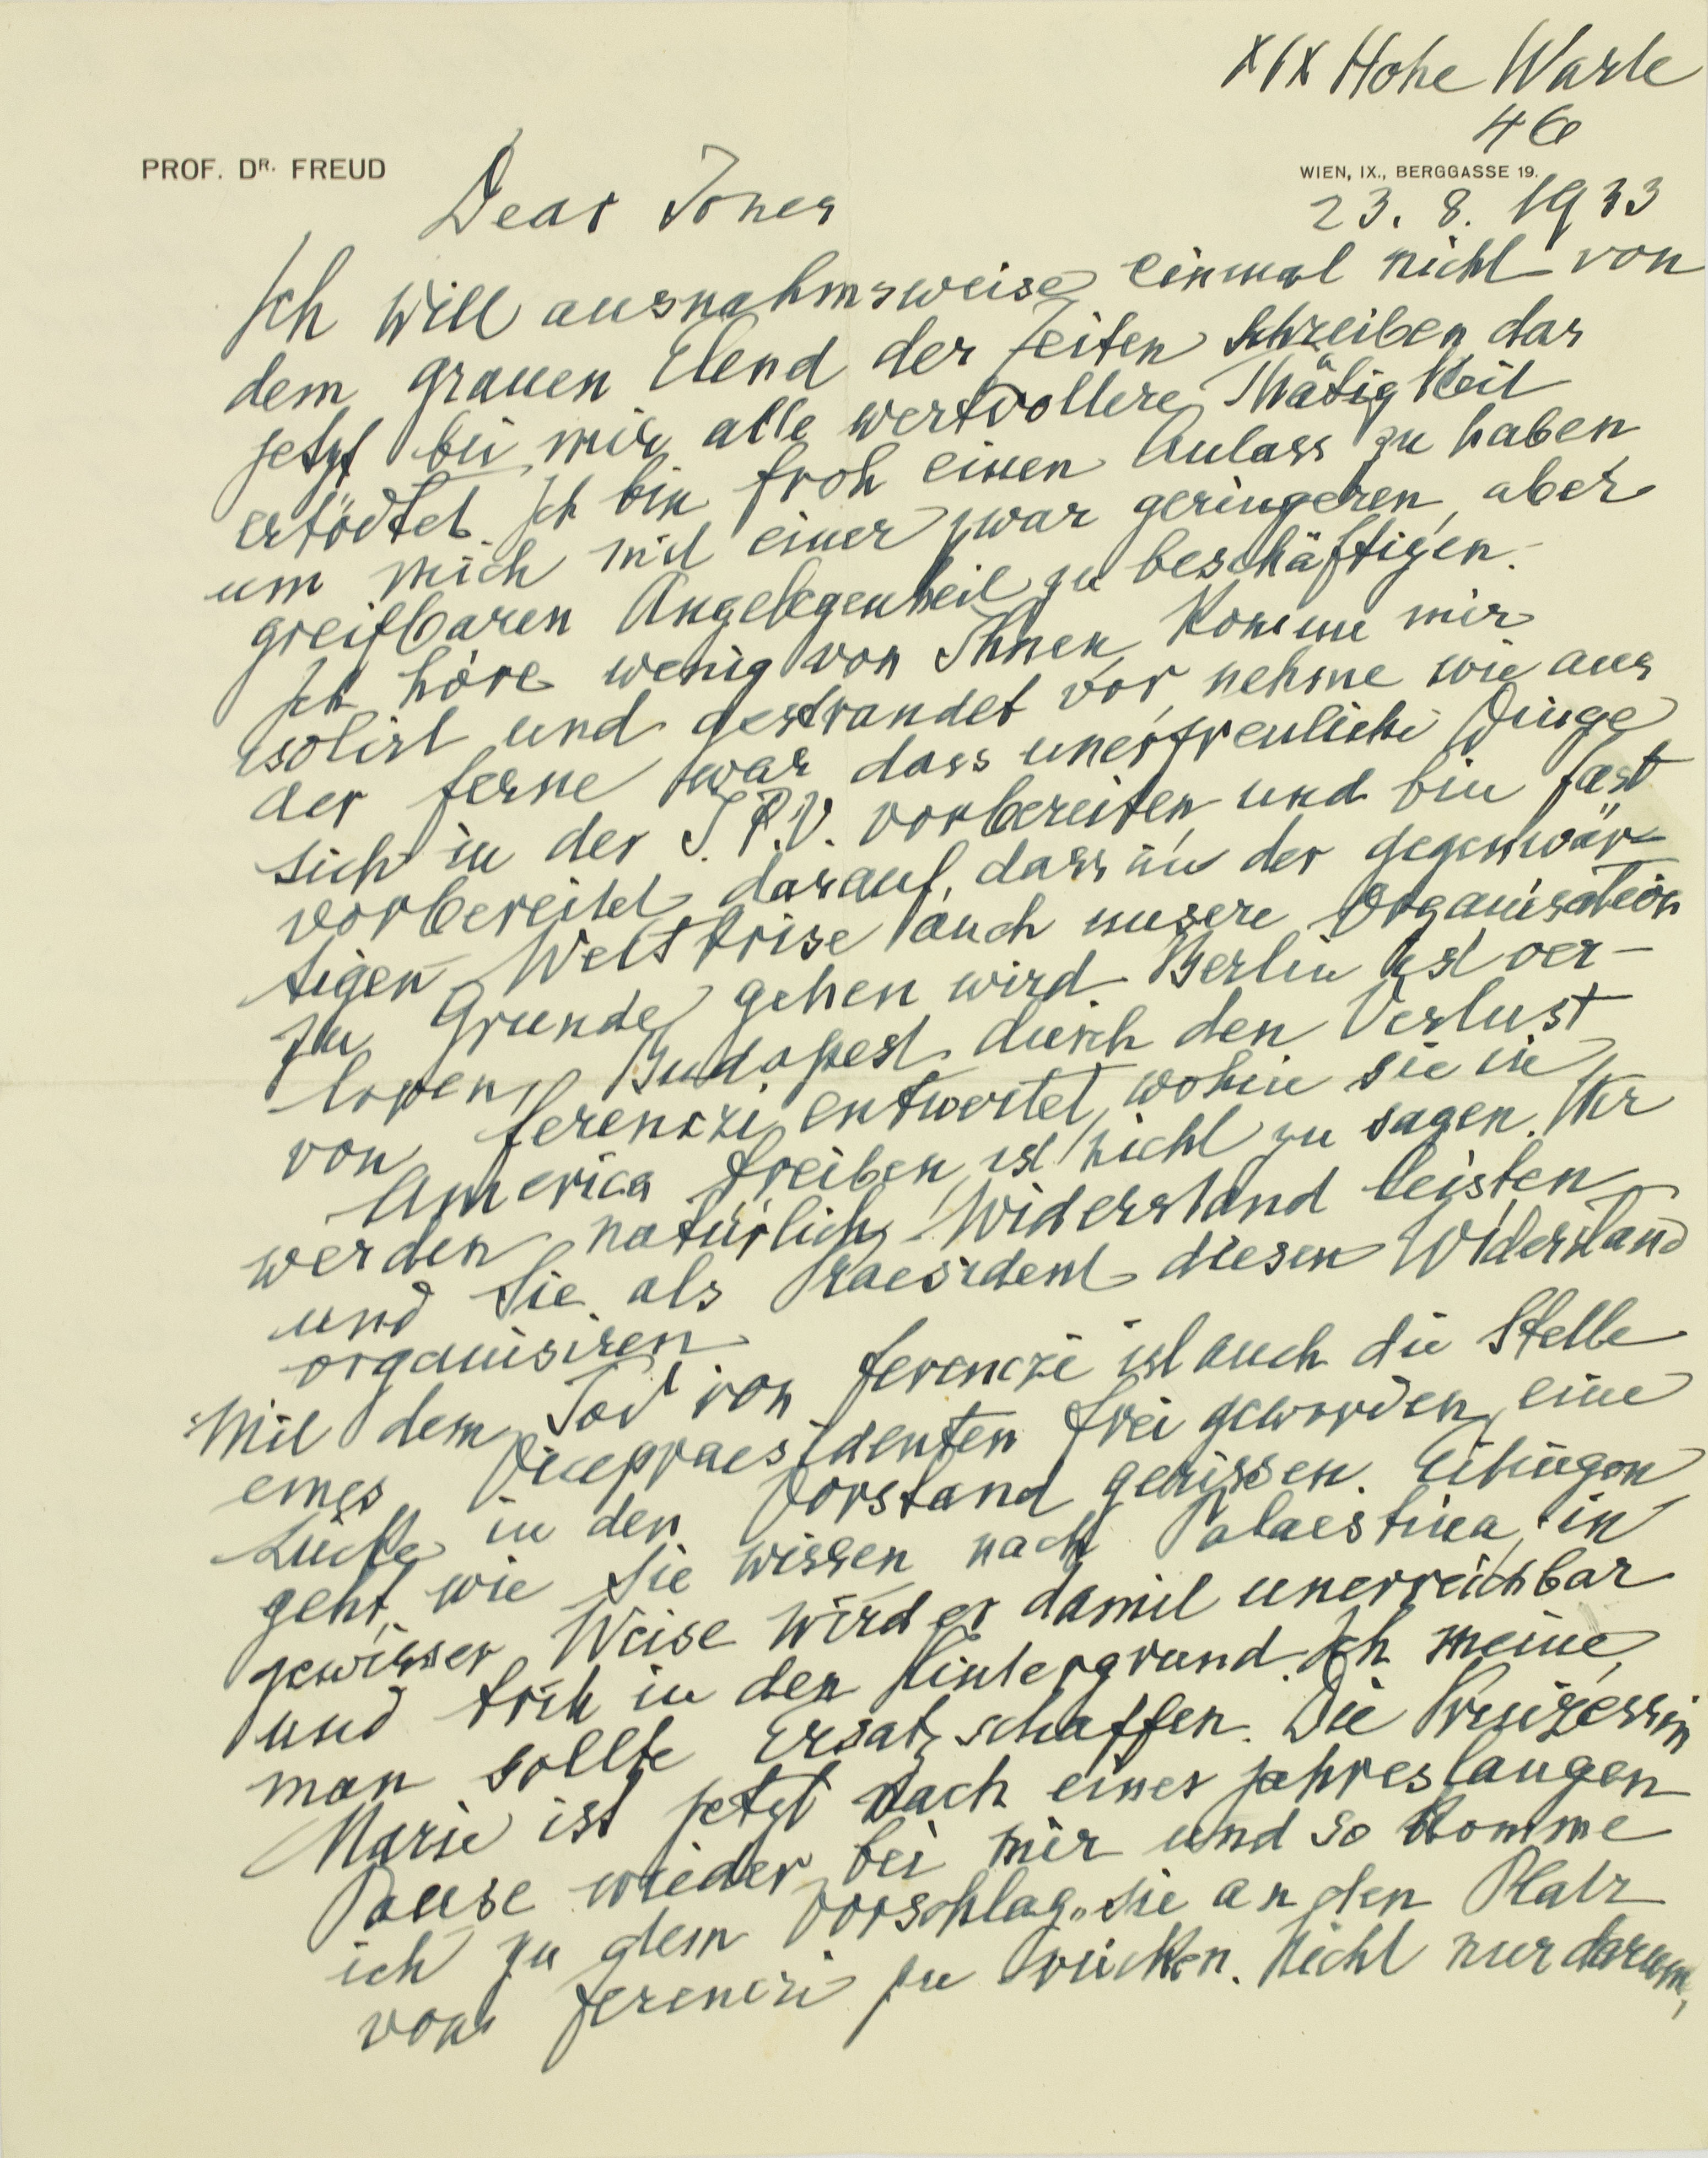 XIX Hohe Warte
46
PROF. DR. FREUD
WIEN, IX., BERGGASSE 19.
23. 8. 1933
Dear Jones
Ich will ausnahmsweise einmal nicht von
dem grauen Elend der Zeiten schreiben das
jetzt bei mir alle wertvollere Thätigkeit
ertödtet. Ich bin froh einen Anlass zu haben
um mich mit einer zwar geringeren, aber
greifbaren Angelegenheit zu beschäftigen.
Ich höre wenig von Ihnen, komme mir
isolirt und gestrandet vor, nehme wie aus
der Ferne war dass unerfreuliche Dinge
sich in der I.P.V. vorbereiten und bin fast
vorbereitet darauf, dass in der gegenwär-
tigen Weltkrise auch unsere Organisation
zu Grunde gehen wird. Berlin ist ver-
loren, Budapest durch den Verlust
von Ferenczi entwertet, wohin sie in
America treiben, ist nicht zu sagen. Wir
werden natürlich Widerstand leisten
und Sie als Praesident diesen Widerstand
organisiren
Mit dem Tod von Ferenczi ist auch die Stelle
eines Vicepraesidenten frei geworden, eine
Lücke in den Vorstand gerissen. Eitingon
geht, wie Sie wissen nach Palaestina, in
gewisser Weise wird er damit unerreichbar
und tritt in den Hintergrund. Ich meine,
man sollte Ersatz schaffen. Die Prinzessin
Marie ist jetzt nach einer jahreslangen
Pause wieder bei mir und so komme
ich zu dem Vorschlag, sie an den Platz
von Ferenczi zu rücken. Nicht nur darum,